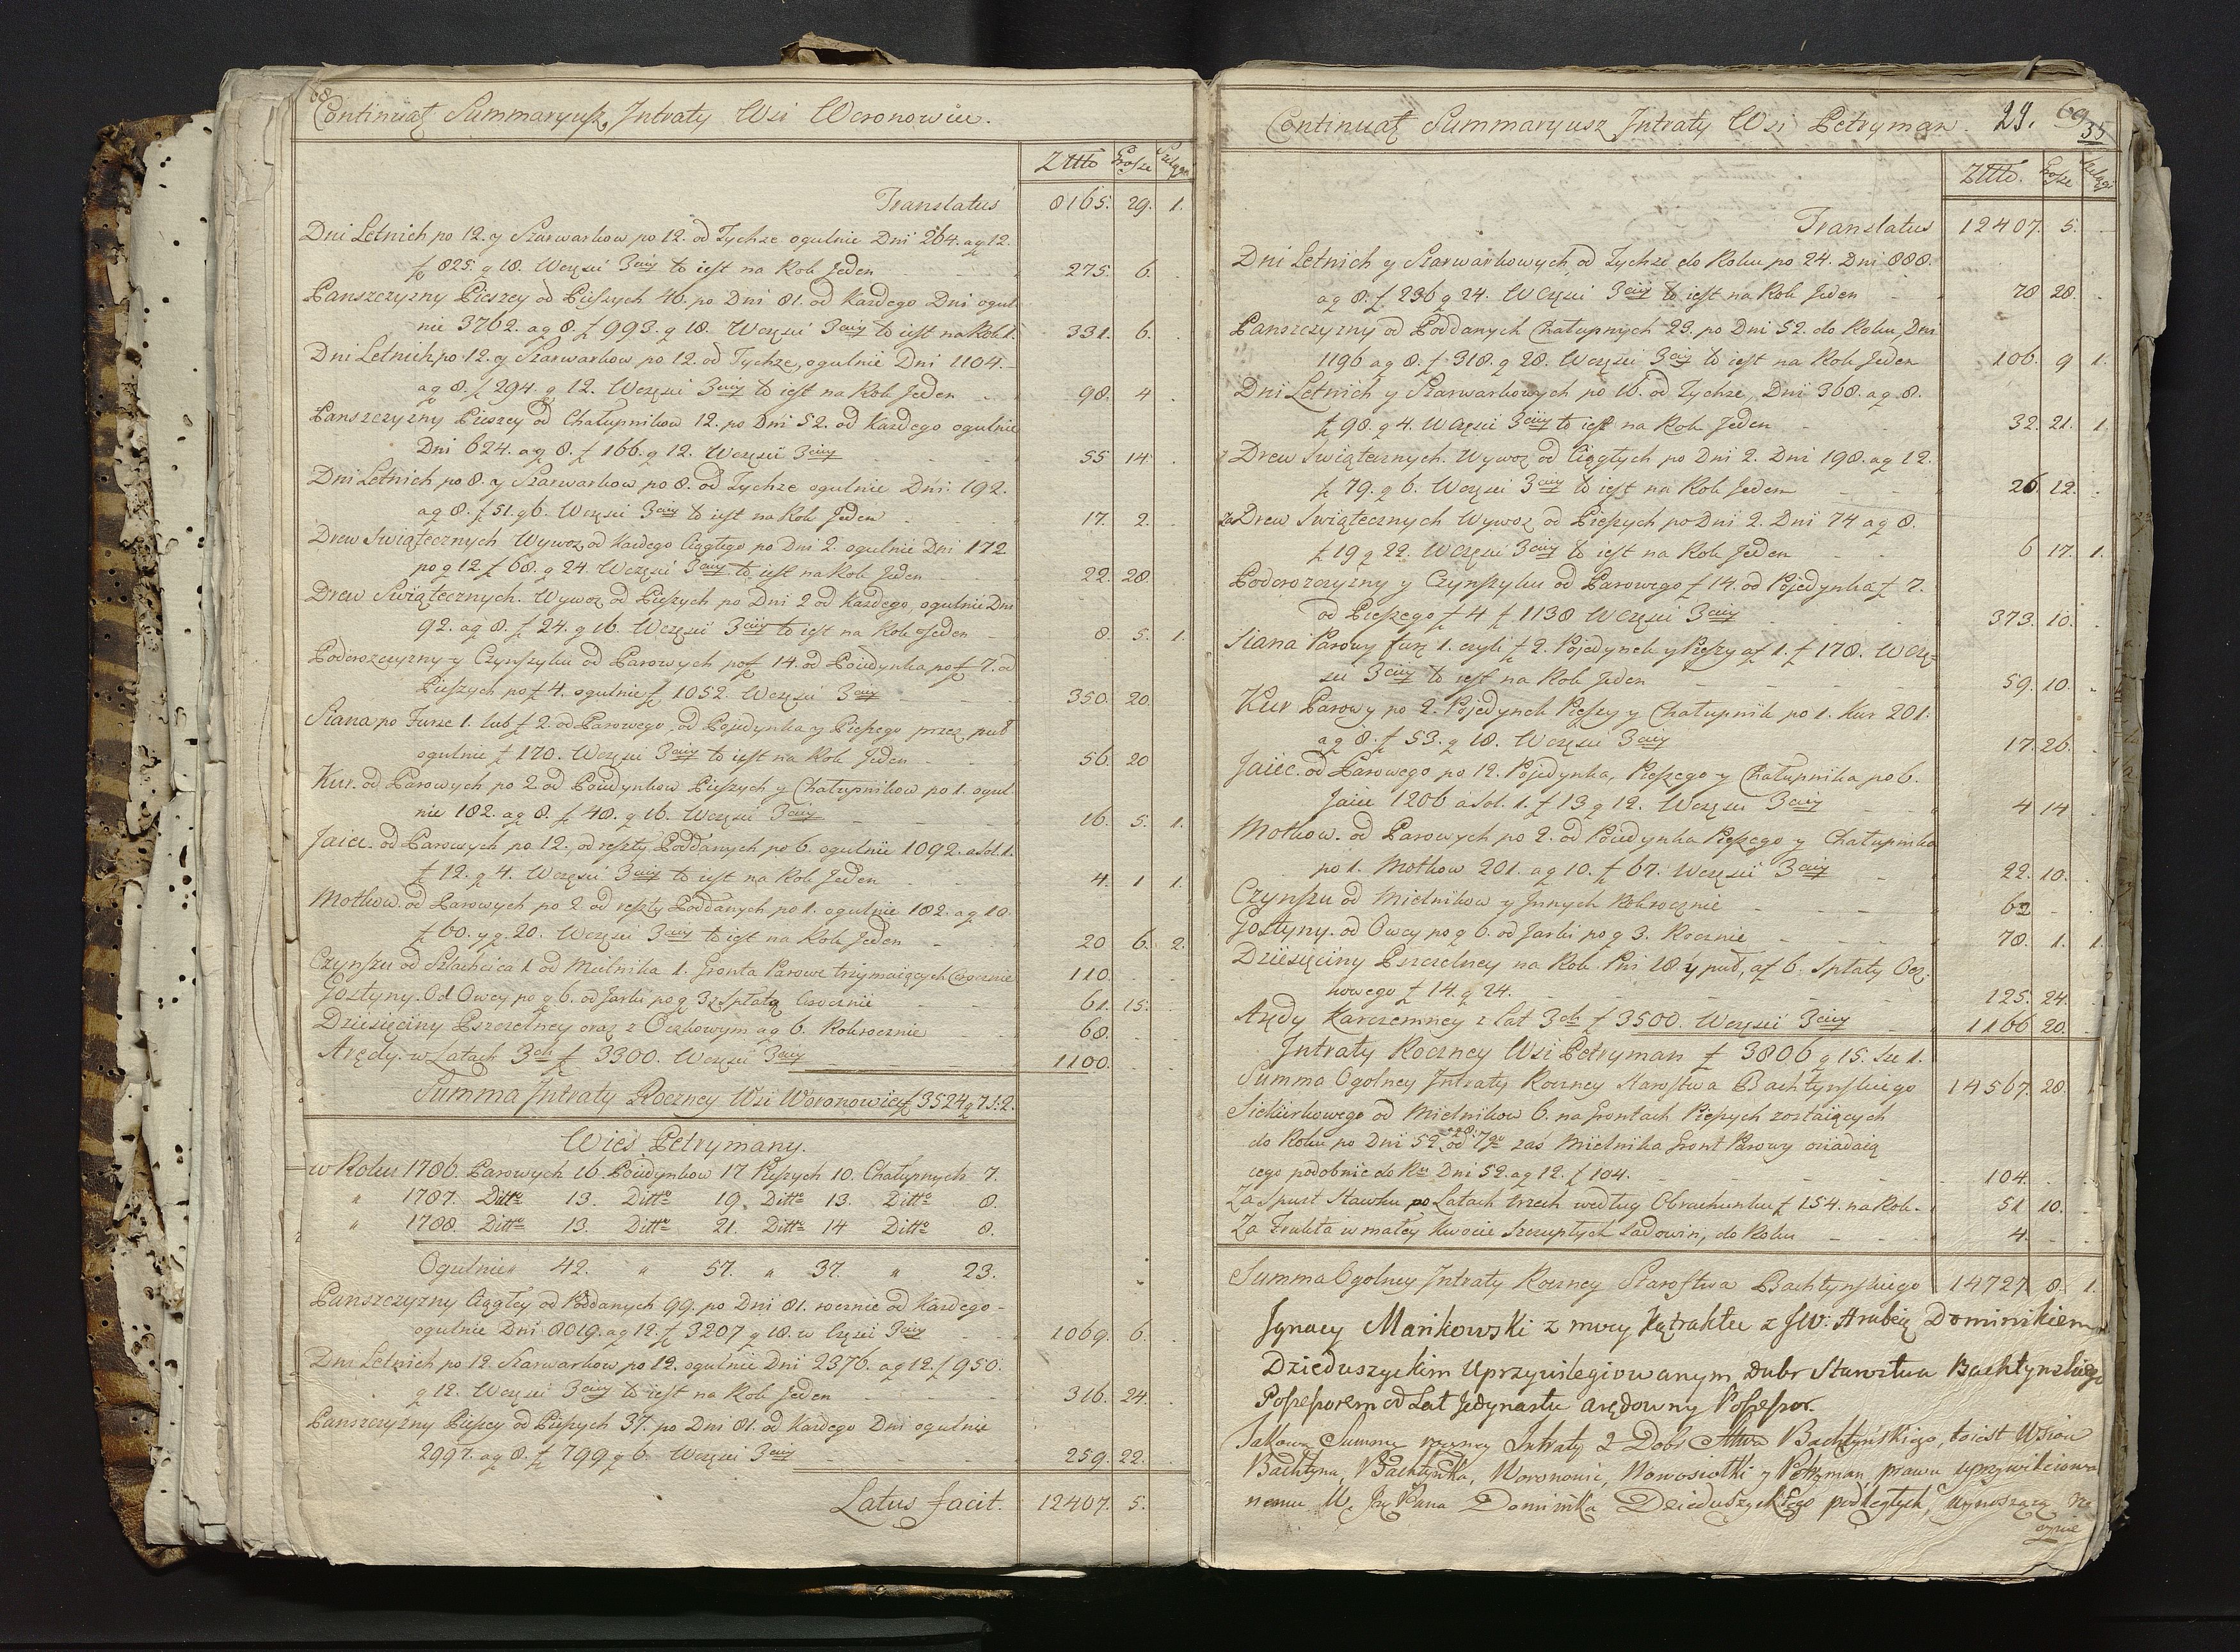 68
Continuat Summaryusz Intraty Wsi Woronowiec.
Złłto Grosze Szelągi
Translatus 8165. 29. 1.
Dni Letnich po 12. y Szarwarkow po 12. od Tychże ogulnie Dni 264. ag 12.
f 825. g 18. W Części 3ciey to iest na Rok Jeden 275. 6.
Panszczyzny Pieszey od Pieszych 46. po Dni 81. od Każdego Dni ogul
nie 3762. ag 8. f 993. g 18. W Części 3ciey to iest na Rok 1. 331. 6.
Dni Letnich po 12. y Szarwarkow po 12. od Tychże, ogulnie Dni 1104.
ag 8. f 294. g 12. W Części 3ciey to iest na Rok Jeden 98. 4
Panszczyzny Pieszey od Chałupnikow 12. po Dni 52. od Każdego ogulnie
Dni 624. ag 8. f 166. g 12. W Części 3ciey 55 14
Dni Letnich po 8. y Szarwarkow po 8. od Tychże ogulnie Dni 192.
ag 8. f 51. g 6. W Części 3ciey to iest na Rok Jeden 17. 2.
Drew Swiątecznych Wywoz od Każdego Ciągłego po Dni 2. ogulnie Dni 172
po g 12 f 68. g 24. W Części 3ciey to iest na Rok Jeden 22. 28.
Drew Swiątecznych. Wywoz od Pieszych po Dni 2 od Każdego, ogulnie Dni
92. ag 8. f 24. g 16. W Części 3ciey to iest na Rok Jeden 8. 5. 1.
Podorozczyzny y Czynszyku od Parowych po f 14. od Poiedynka po f 7. od
Pieszych po f 4. ogulnie f 1052. W Części 3ciey 350. 20.
Siana po Furze 1. lub f 2. od Parowego, od Pojedynka y Pieszego przez puł
ogulnie f 170. W Części 3ciey to iest na Rok Jeden 56. 20
Kur. od Parowych po 2 od Poiedynkow Pieszych y Chałupnikow po 1. ogul
nie 182. ag 8. f 48. g 16. W Części 3ciey 16. 5. 1.
Jaiec. od Parowych po 12., od reszty Poddanych po 6. ogulnie 1092. a sol. 1.
f 12. g 4. W Części 3ciey to iest na Rok Jeden 4. 1 1.
Motkow. od Parowych po 2. od reszty Poddanych po 1. ogulnie 182. ag 10.
f 60. y g. 20. W Części 3ciey to iest na Rok Jeden 20 6. 2.
Czynszu od Szlachcica 1. od Mielnika 1. Gronta Parowe trzymaiących Corocznie 110.
Gostyny. Od Owcy po g 6. od Jarki po g 3 z Spłatą Corocznie 61. 15.
Dziesięciny Pszczelney oraz z Oczkowym ag 6. Rokrocznie 68.
Arędy. w Latach 3ch f 3300. W Części 3ciey 1100.
Summa Intraty Roczney Wsi Woronowiec f 3524 g 7 S: 2.
Wieś Petrymany.
w Roku 1786. Parowych 16 Poiedynkow 17 Pieszych 10. Chałupnych 7.
" 1787. Ditto 13. Ditto 19. Ditto 13. Ditto 8.
" 1788. Ditto 13. Ditto 21. Ditto 14 Ditto 8.
Ogulnie " 42. " 57. " 37. " 23.
Panszczyzny Ciągłey od Poddanych 99. po Dni 81. rocznie od Każdego
ogulnie Dni 8019. ag 12. f 3207 g 18. w Części 3ciey 1069. 6.
Dni Letnich po 12. Szarwarkow po 12. ogulnie Dni 2376. ag 12. f 950.
g 12. W Części 3ciey to iest na Rok Jeden 316. 24.
Panszczyzny Pieszey od Pieszych 37. po Dni 81. od Każdego Dni ogulnie
2997. ag 8. f 799 g 6. W Części 3ciey 259. 22.
Latus facit. 12407. 5.
Continuat Summaryusz Intraty Wsi Petryman. 29. 69
35
Złłto. Grosze Szelągi
Translatus 12407. 5.
Dni Letnich y Szarwarkowych, od Tychże do Roku po 24. Dni 888.
ag 8. f 236 g 24. W Części 3ciey to iest na Rok Jeden 78 28.
Panszczyzny od Poddanych Chałupnych 23. po Dni 52. do Roku, Dni
1196 ag 8. f 318. g 28. W Części 3ciey to iest na Rok Jeden 106. 9 1.
Dni Letnich y Szarwarkowych po 16. od Tychże, Dni 368. ag 8.
f 98. g 4. W Części 3ciey to iest na Rok Jeden 32. 21. 1
Drew Swiątecznych. Wywoz od Ciągłych po Dni 2. Dni 198. ag 12.
f 79. g 6. W Części 3ciey to iest na Rok Jeden 26 12.
Za Drew Swiątecznych Wywoz od Pieszych po Dni 2. Dni 74 ag 8.
f 19 g 22. W Części 3ciey to iest na Rok Jeden 6 17. 1.
Podorozczyzny y Czynszyku od Parowego f 14. od Pojedynka f 7.
od Pieszego f 4 f 1138 W Części 3ciey 373. 10.
Siana Parowy furę 1. czyli f 2. Pojedynek y Pieszy a f 1. f 178. W Czę=
sci 3ciey to iest na Rok Jeden 59. 10.
Kur Parowy po 2. Pojedynek Pieszy y Chałupnik po 1. Kur 201.
ag 8. f 53. g 18. W Części 3ciey 17. 26.
Jaiec. od Parowego po 12. Pojedynka, Pieszego y Chałupnika po 6.
Jaiec 1206 a sol. 1. f 13 g 12. W Części 3ciey 4 14
Motkow. od Parowych po 2. od Poiedynka Pieszego y Chałupnika
po 1. Motkow 201. ag 10. f 67. W Części 3ciey 22. 10.
Czynszu od Mielnikow y Innych Rokrocznie 62
Gostyny. od Owcy po g 6. od Jarki po g 3. Rocznie 78. 1. 1
Dziesięciny Pszczelney na Rok Pni 18 y puł, a f 6. Spłaty Ocz
kowego f 14. g 24. 125. 24.
Arędy Karczemney z Lat 3ch f 3500. W Części 3ciey 1166 20.
Intraty Roczney Wsi Petryman f 3806 g 15. Sze 1.
Summa Ogolney Intraty Roczney Starostwa Bachtynskiego 14567. 28.
Siekirkowego od Mielnikow 6. na Grontach Pieszych zostaiących
do Roku po Dni 52 ag 8. od 7go zaś Mielnika Gront Parowy osiadaią
cego podobnie do Ru Dni 52. ag 12. f 104. 104.
Za Spust Stawku po Latach trzech według Obrachunku f 154. na Rok 51 10.
Za Frukta w małey kwocie Szczupłych Sadowin, do Roku 4.
Summa Ogolney Intraty Roczney Starostwa Bachtynskiego 14727. 8. 1.
Ignacy Mańkowski z mocy Kątraktu z JW: Hrabią Dominikiem
Dzieduszyckim Uprzywilegiowanym Dubr Starostwa Bachtynskiego
Possessorem od Lat Jedynastu arędowny Possessor.
Takową Summę roczney Intraty z Dobr Sttwa Bachtyńskiego, to iest Wsiow
Bachtyna, Bachtynka, Woronowic, Nowosiołki y Petryman, prawu uprzywileiowa
nemu W. Jmć Pana Dominika Dzieduszyckiego podległych, wynoszącą rze
czywi